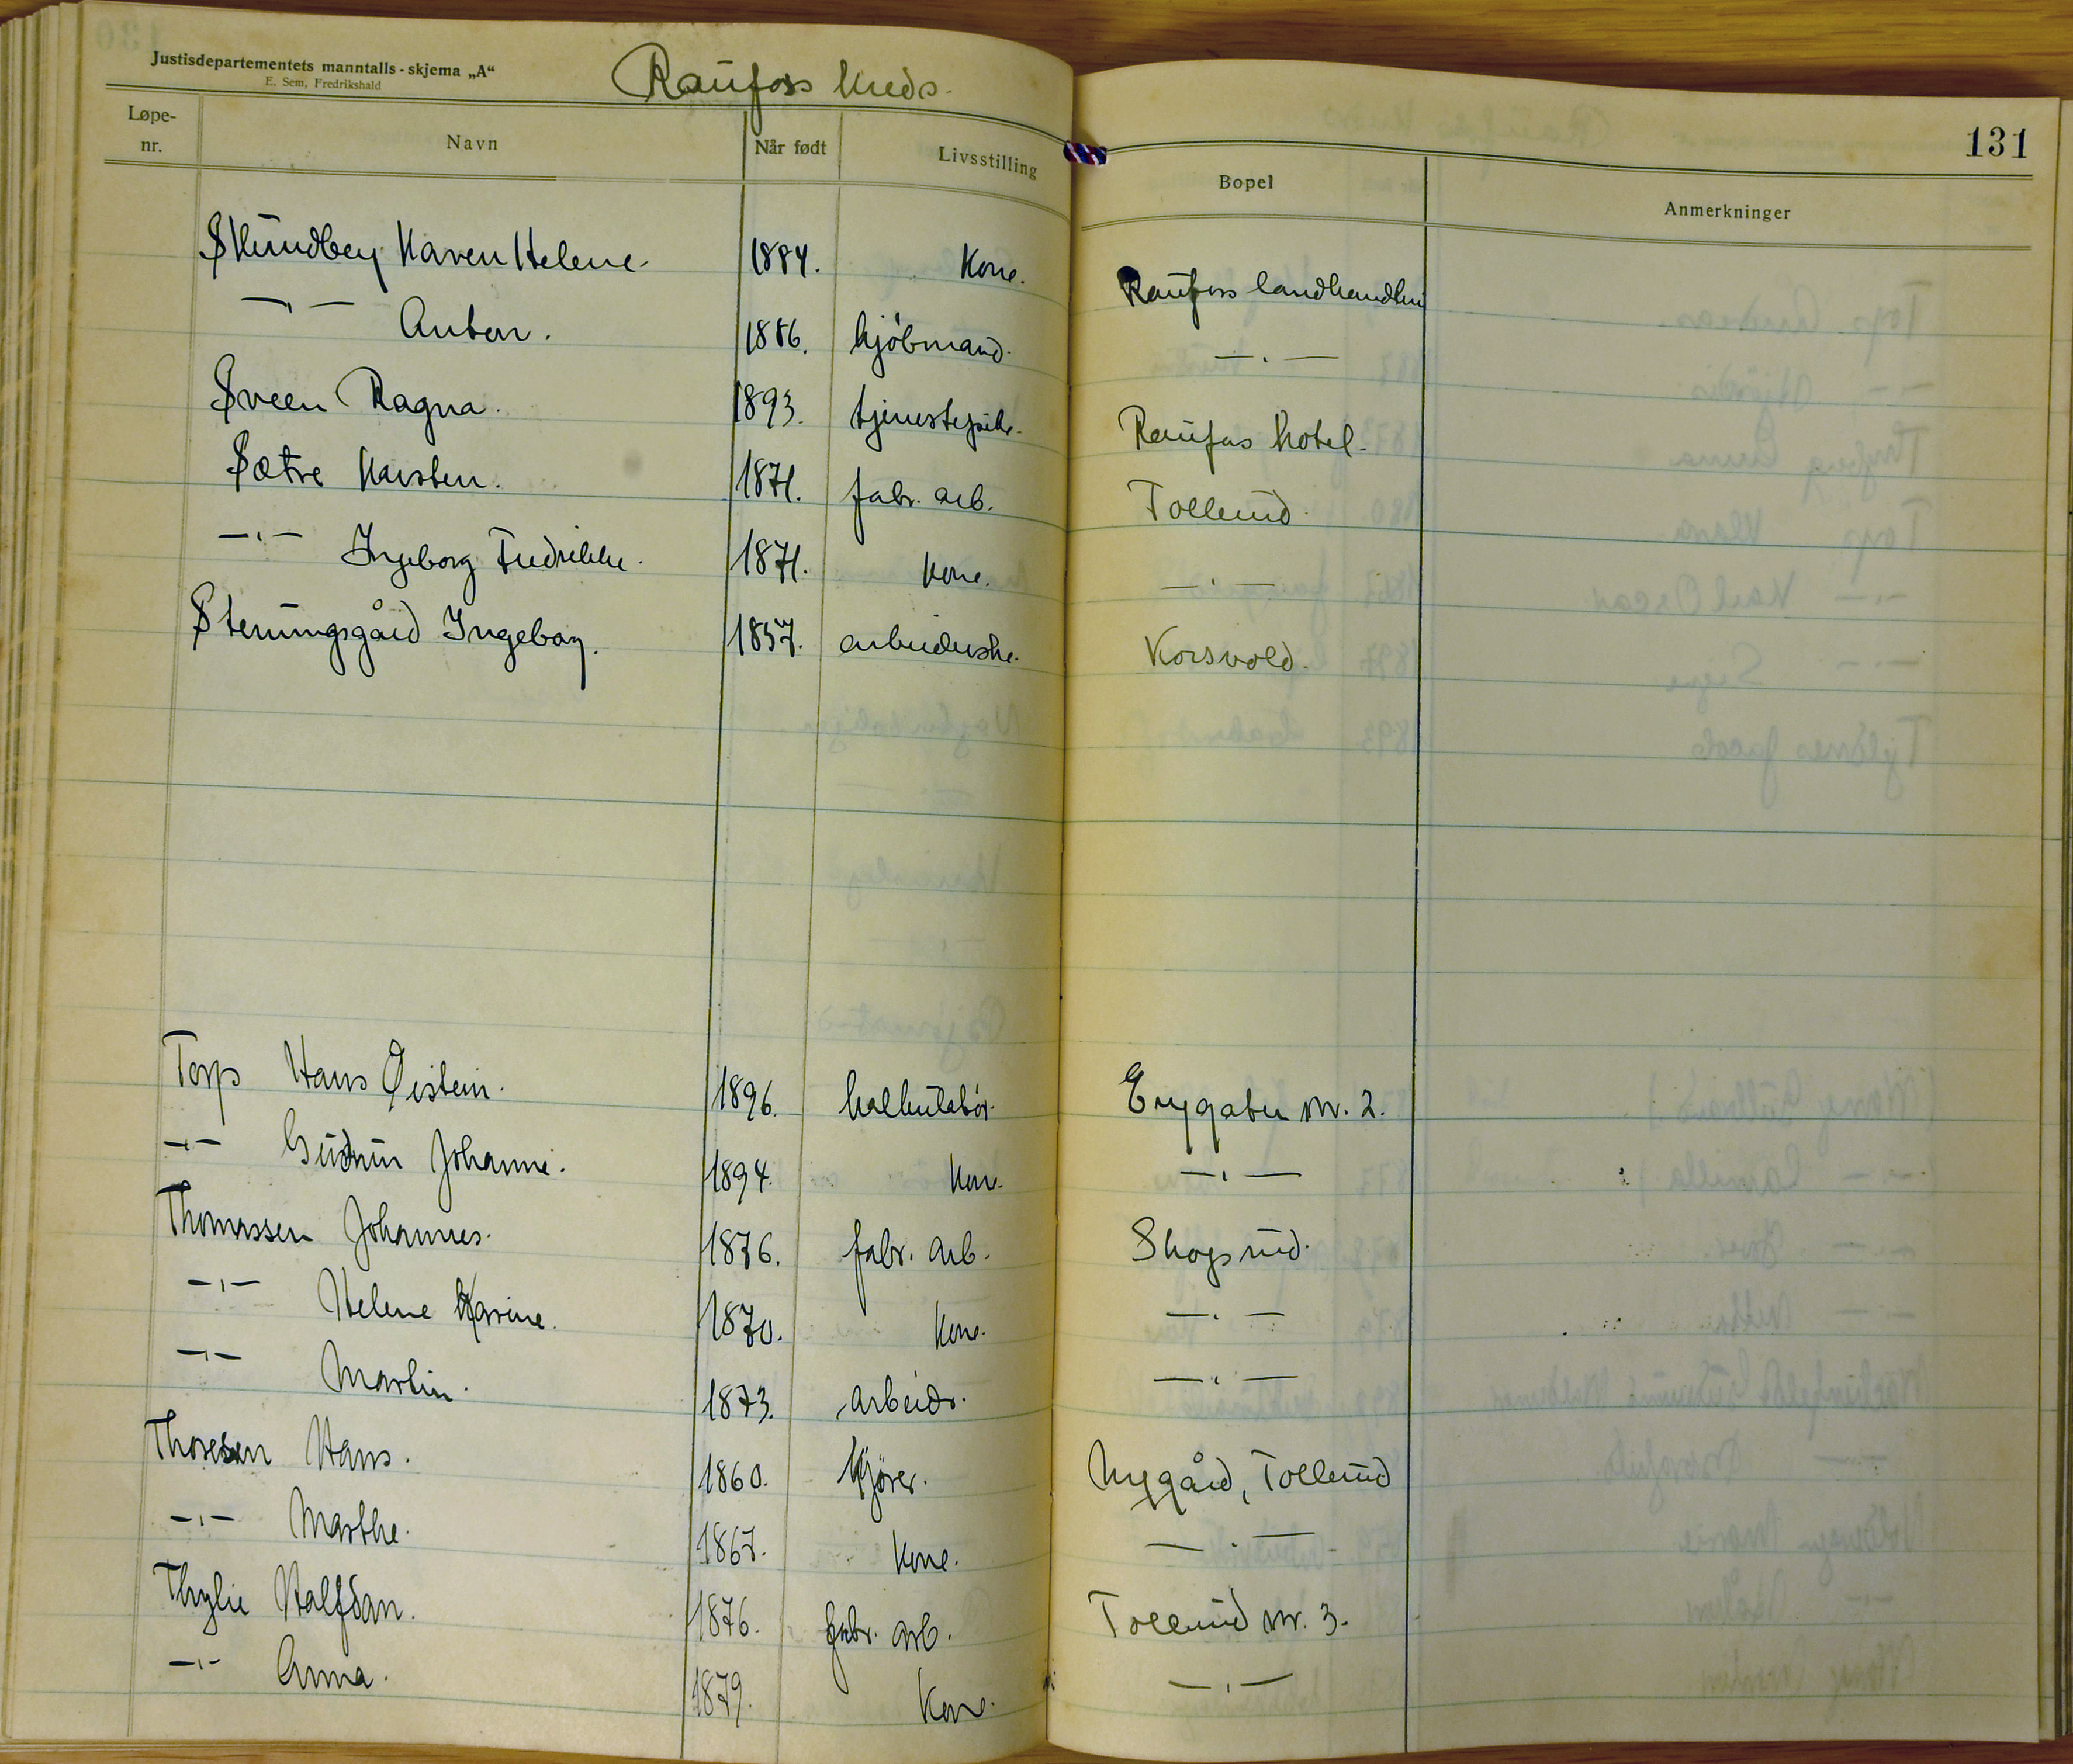 Justisdepartementets manntalls-skjema „A“
E. Sem, Fredrikshald
Raufoss kreds.
131
Løpe-nr. Navn Når født Livsstilling Bopel Anmerkninger
Skundberg Karen Helene. 1884. Kone. Raufoss landhandleri
—„— Anton. 1886. kjøbmand. —„—
Sveen Ragna. 1893. tjenestepike. Raufos hotel.
Sætre Karsten. 1871. fabr. arb. Tollerud
—„— Ingeborg Fredrikke. 1871. kone. —„—
Steningsgård Ingeborg. 1857. arbeiderske. Korsvold.
Torp Hans Øistein. 1896. Eny gaten nr. 2.
—„— Gudrun Johanne. 1894. kone. —„—
Thomassen Johannes. 1876. fabr. arb. Skogrud.
—„— Helene Karine. 1870. kone. —„—
—„— Martin. 1873. arbeidr. —„—
Thoresen Hans. 1860. Kjører. Nygård, Tollerud
—„— Marthe. 1867. kone. —„—
Thylie Halfdan. 1876. fabr. arb. Tollerud nr. 3.
—„— Anna. 1879. Kone. —„—